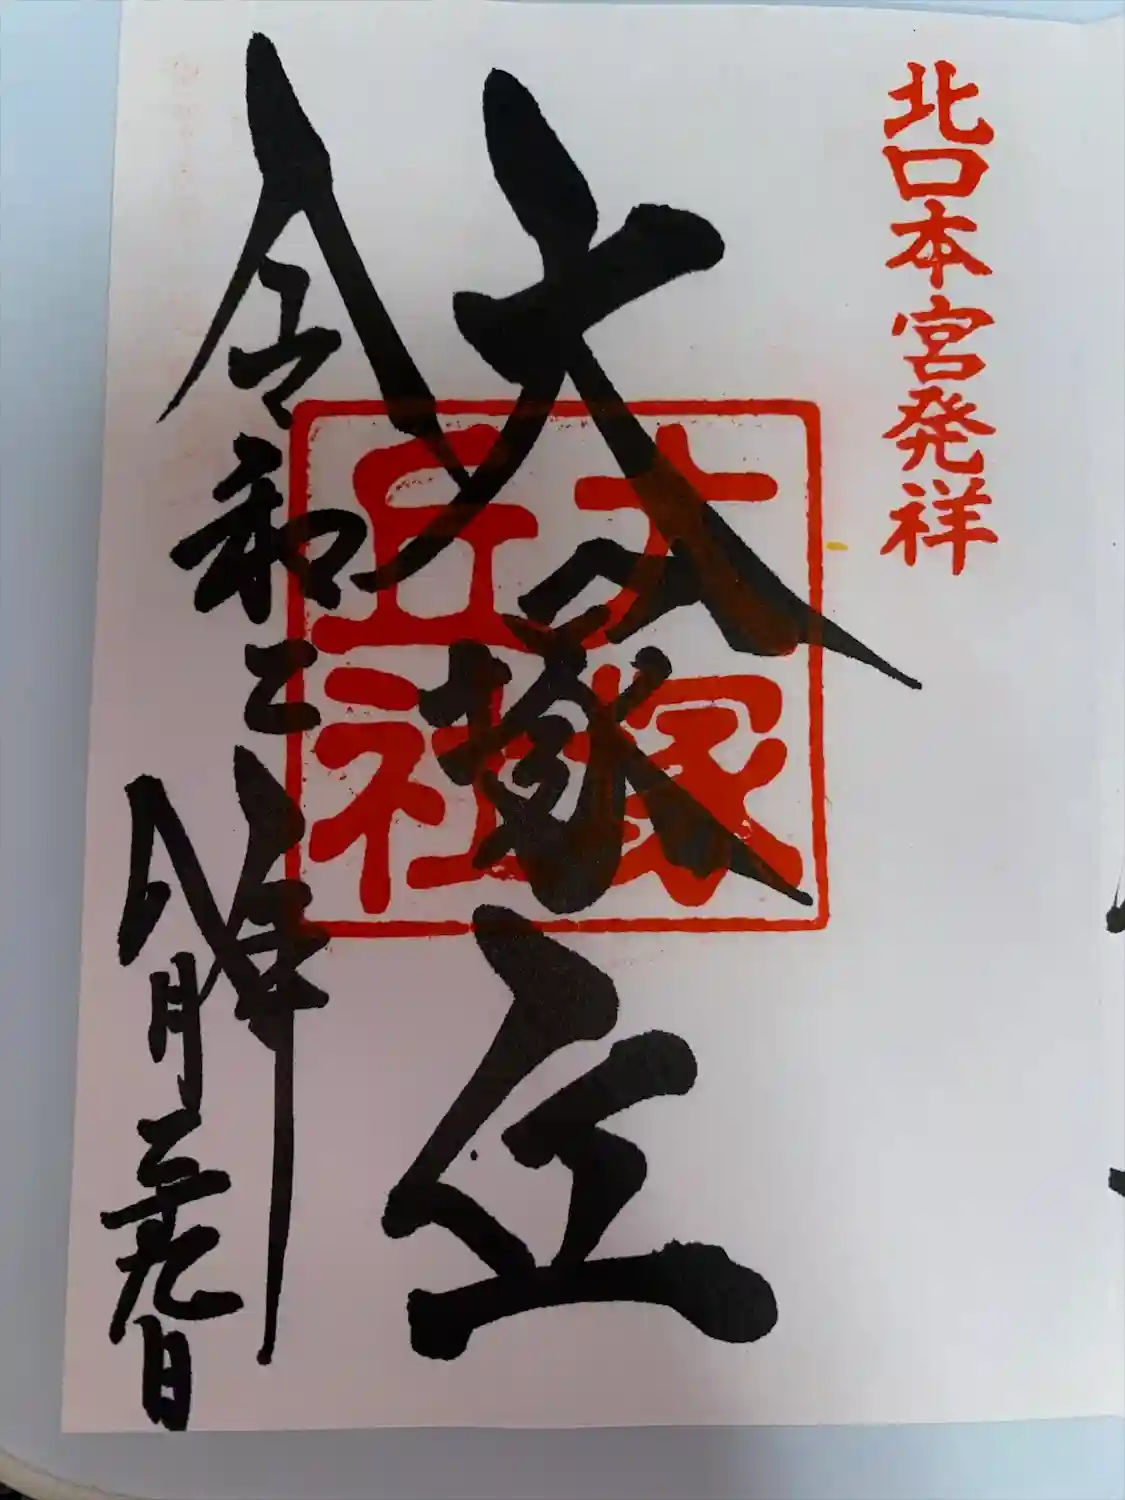 北口本宮発祥
大塚丘
大塚
丘社
令和二年
八月二十九日